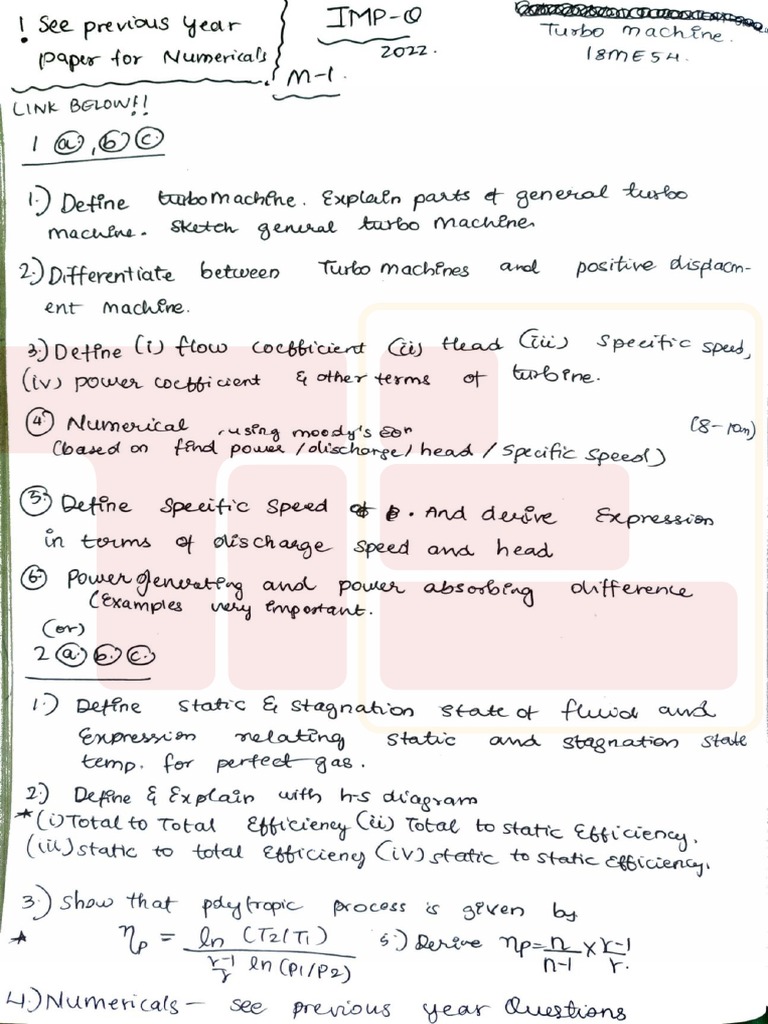 ! See previous year
paper for Numericals
IMP-Q
2022.
Turbo machine.
18ME54.
M-1.
LINK BELOW!!
1 (a), (b) (c)
1.) Define turbomachine. Explain parts of general turbo
machine. Sketch general turbo machine
2.) Differentiate between Turbo machines and positive displacm-
ent machine.
3.) Define (i) flow coefficient (ii) Head (iii) Specific speed,
(iv) power coefficient & other terms of turbine.
(4) Numerical , using moody's eqn (8-10m)
(based on find power / discharge / head / specific speed)
(5.) Define specific speed of . And derive Expression
in terms of discharge speed and head
(6.) Power generating and power absorbing difference
(Examples very important.
(or)
2 (a) (b) (c)
1.) Define static & stagnation state of fluid and
Expression relating static and stagnation state
temp. for perfect gas.
2.) Define & Explain with h-s diagram
* (i) Total to Total Efficiency (ii) Total to static Efficiency.
(iii) static to total Efficieny (iv) static to static efficiency.
3.) Show that polytropic process is given by
* ηp = ln (T2/T1) / r-1/r ln (P1/P2)
5.) Derive ηp = n/n-1 × r-1/r.
4.) Numericals - see previous year Questions